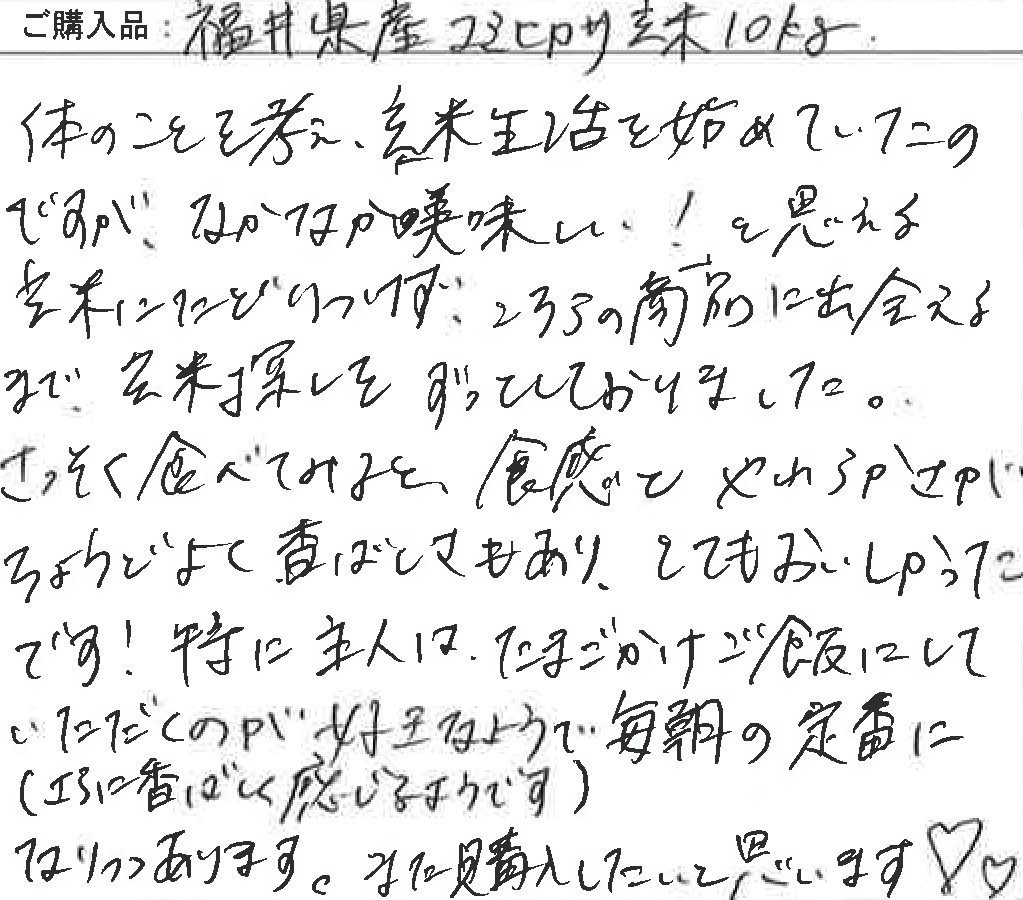 ご購入品：福井県産コシヒカリ玄米10kg
体のことを考え、玄米生活を始めていたの
ですが、なかなか美味しい！と思える
玄米にたどりつけず、こちらの商品に出会える
まで玄米探しをずっとしておりました。
さっそく食べてみると、食感とやわらかさが
ちょうどよく香ばしさもあり、とてもおいしかった
です！特に主人は、たまごかけご飯にして
いただくのが好きなようで毎朝の定番に
(さらに香ばしく感じるようです)
なりつつあります。また購入したいと思います♡♡